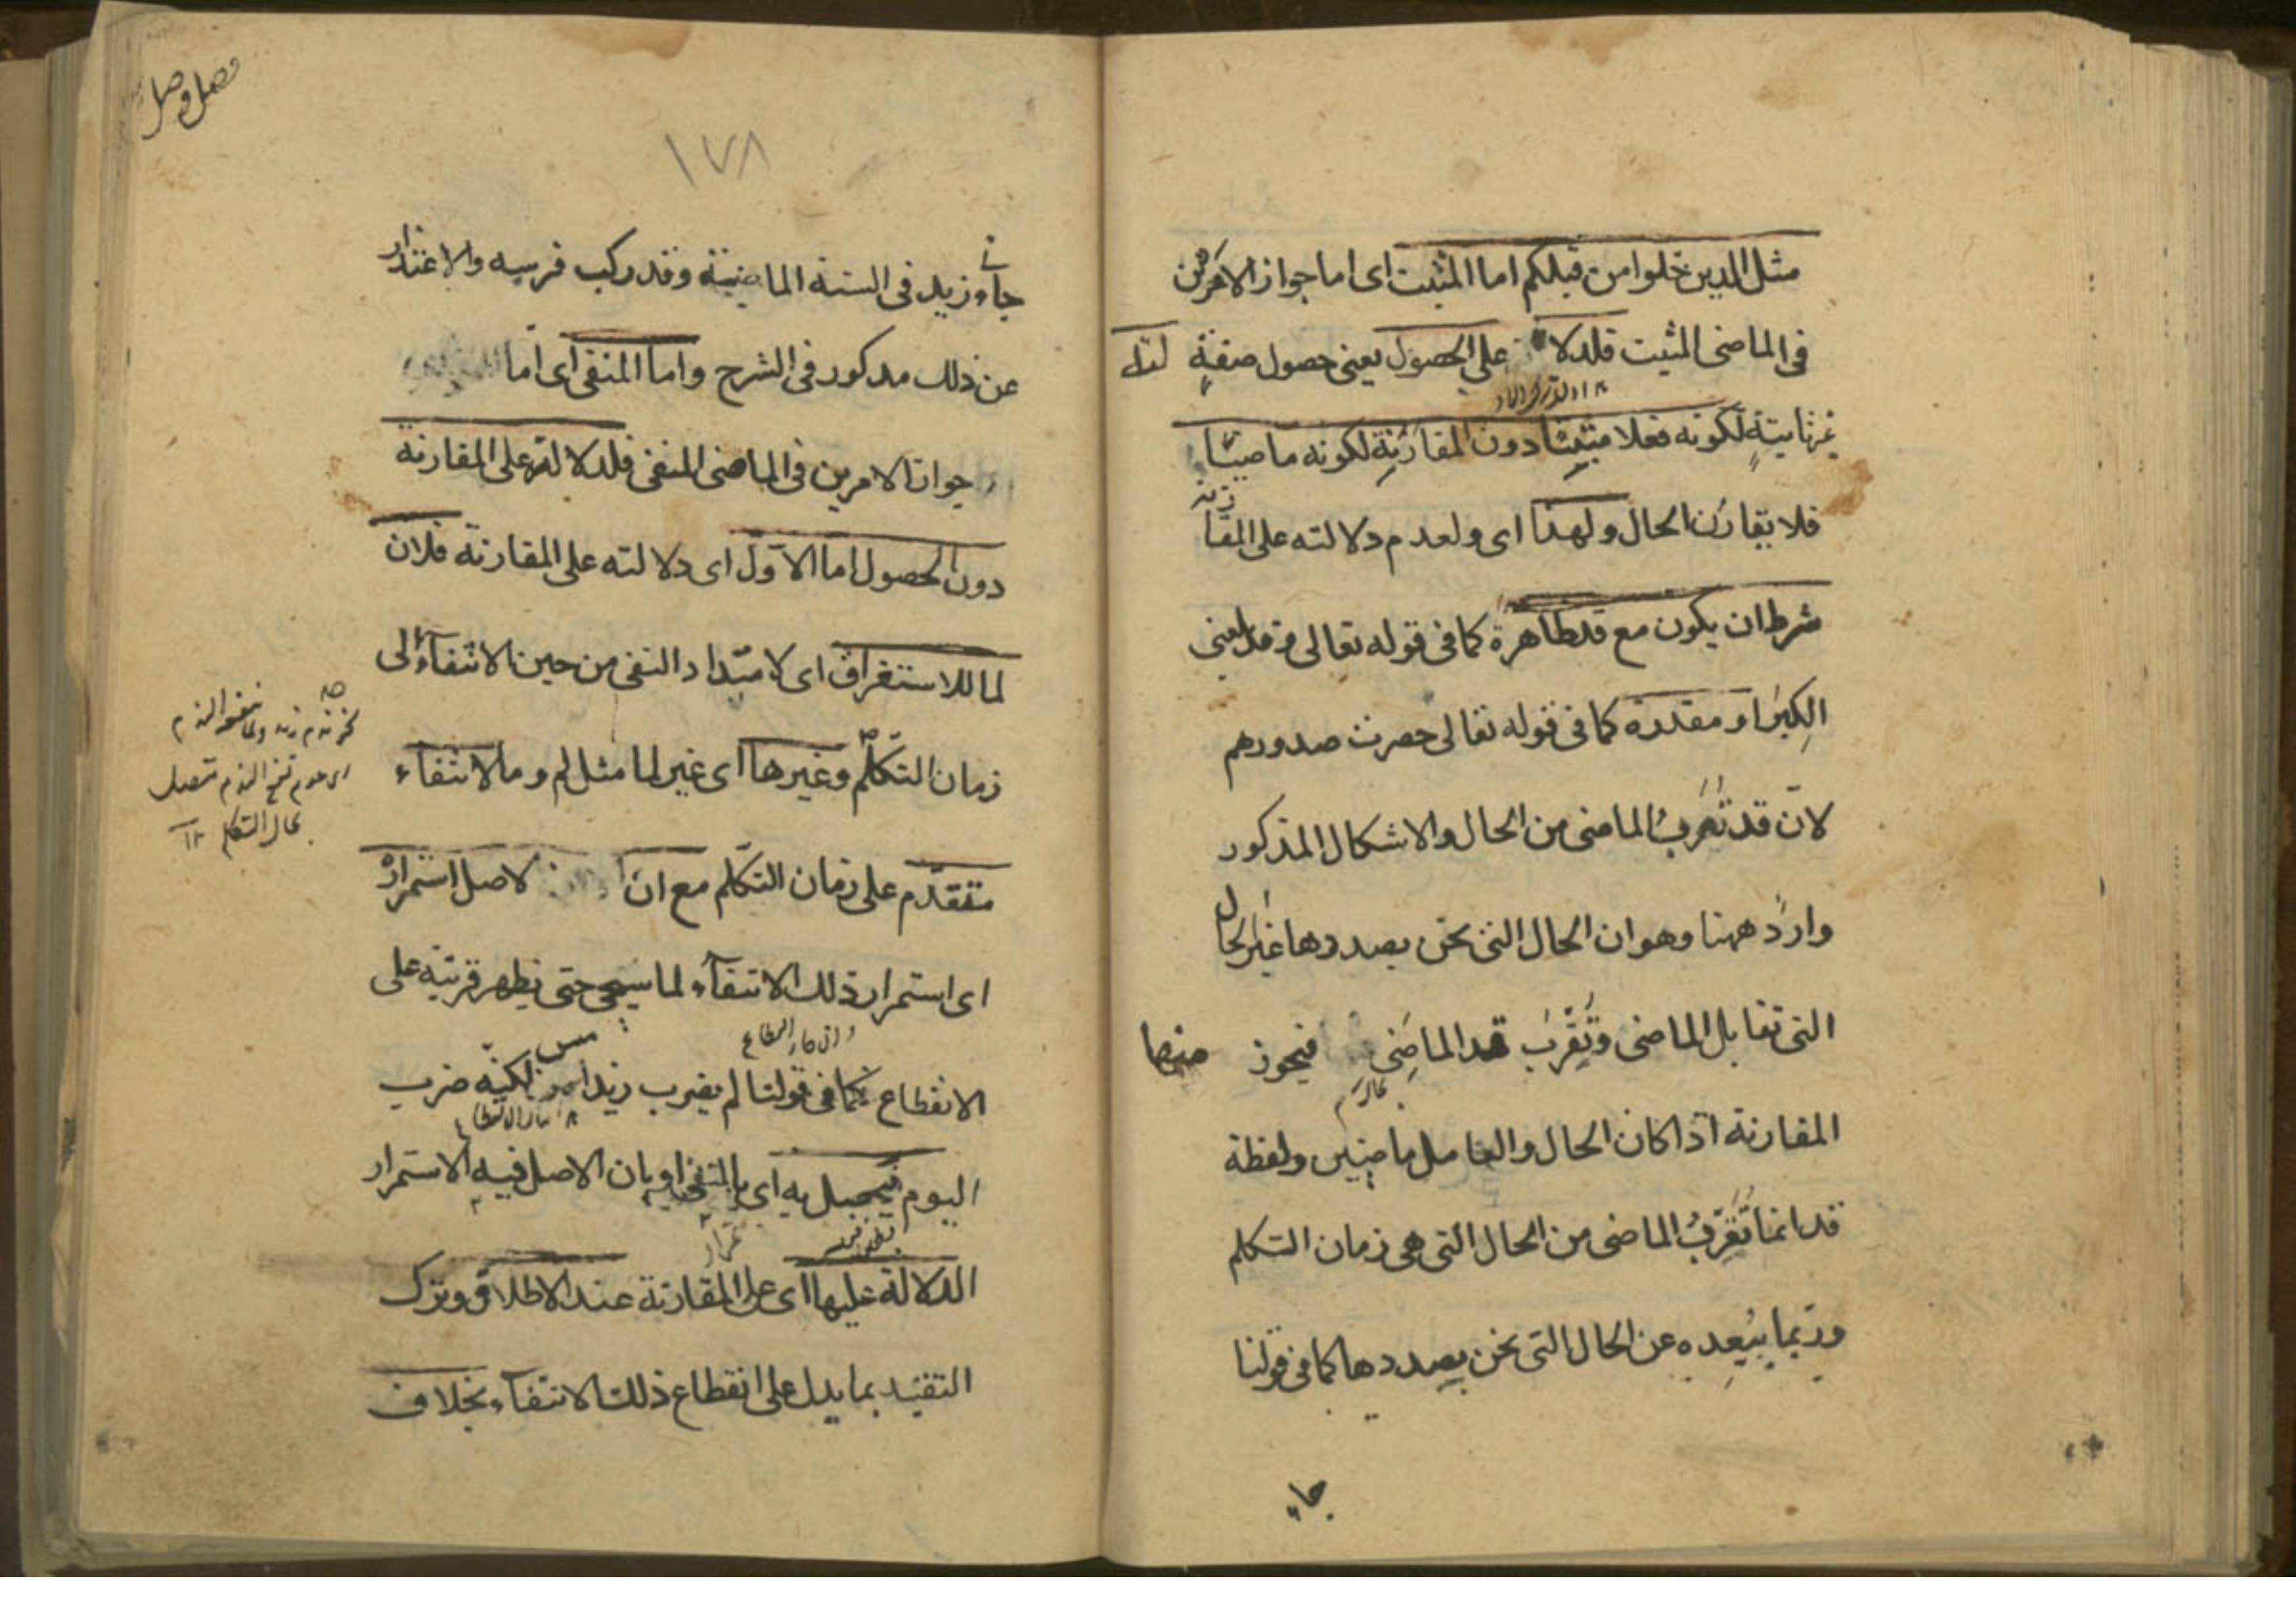 مثل الذين خلوا من قبلكم اما المثبت اى اما جواز الامرين
فى الماضى المثبت فلدلالته على الحصول يعنى حصول صفةٍ
غير ثابتةٍ لكونه فعلا مثبتًا دون المقارَنةِ لكونه ماضيًا
فلا يقارن الحال ولهذا اى ولعدم دلالته على المقارنة
شرط ان يكون مع قد ظاهرة كما فى قوله تعالى وقد بلغنى
الكِبَر او مقدرة كما فى قوله تعالى حصرت صدورهم
لانّ قد تُقرّبُ الماضى من الحال والاشكال المذكور
واردٌ ههنا وهو ان الحال التى نحن بصددها غير الحال
التى تقابل الماضى وتُقَرّبُ قد الماضِى منها فيجوز
المقارنة اذا كان الحال والعامل ماضيين ولفظة
قد انما تُقَرّبُ الماضى من الحال التى هى زمان التكلم
وربّما يُبَعِده عن الحال التى نحن بصددها كما فى قولنا
جاء
فصل وصل
١٧٨
جاءنى زيد فى السنة الماضية وقد ركب فرسه والاعتذار
عن ذلك مذكور فى الشرح واما المنفى اى امّا
جواز الامرين فى الماضى المنفى فلدلالته على المقارنة
دون الحصول امّا الاوّل اى دلالته على المقارنة فلان
لما للاستغراق اى لامتداد النفى من حين الانتفاء الى
زمان التكلّم وغيرها اى غير لما مثل لم وما لانتفاء
متقدّم على زمان التكلّم مع ان الاصل استمراره
اى استمرار ذلك الانتفاء لما سيجى حتى يظهر قرينة على
الانقطاع كما فى قولنا لم يضرب زيد امس لكنّه ضرب
اليوم فيحصل به اى بالنفى او بان الاصل فيه الاستمرار
الدلالة عليها اى على المقارنة عند الاطلاق وترك
التقييد بما يدل على انقطاع ذلك الانتفاء بخلاف
نحو ندم زيد ولما ينفعه الندم
اى عدم نفع الندم متصل
بحال التكلم ١٢